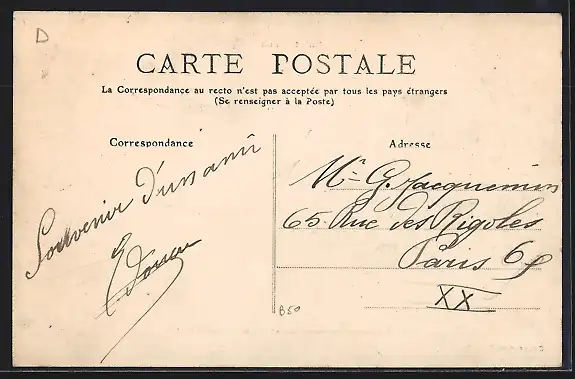 D
CARTE POSTALE
La Correspondance au recto n'est pas acceptée par tous les pays étrangers
(Se renseigner à la Poste)
Correspondance
Souvenir d'un ami
Adresse
Mr G. Jacquemin
65 Rue des Rigoles
Paris
XX
B50